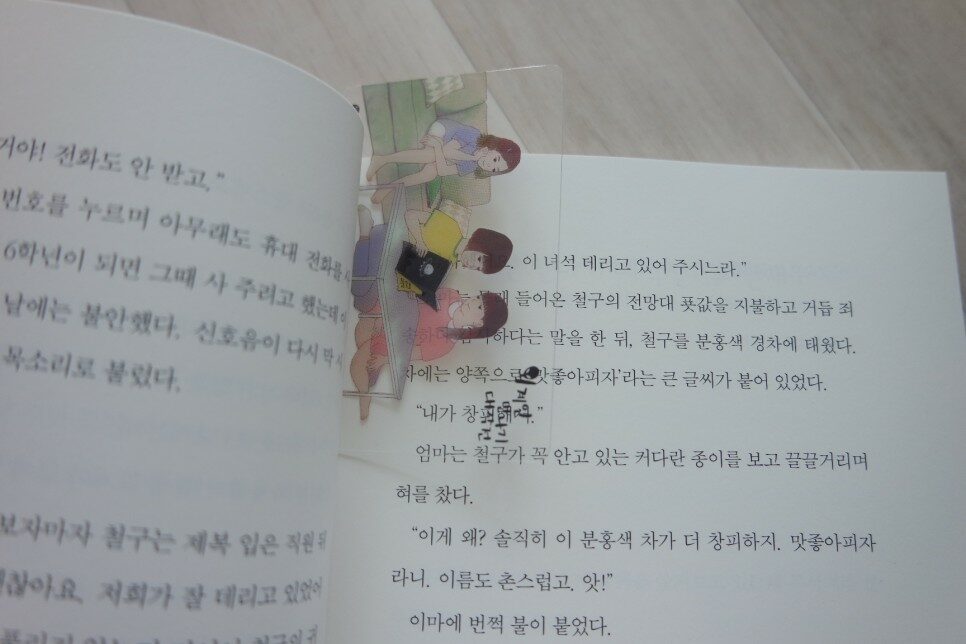 거야! 전화도 안 받고."
번호를 누르며 아무래도 휴대 전화를
6학년이 되면 그때 사 주려고 했는데
날에는 불안했다. 신호음이 다시 딱
목소리로 불렸다.
보자마자 철구는 제복 입은 직원 뒤
괜찮아요. 저희가 잘 데리고 있었어
이 녀석 데리고 있어 주시느라."
들어온 철구의 전망대 푯값을 지불하고 거듭 죄
하다는 말을 한 뒤, 철구를 분홍색 경차에 태웠다.
차에는 양쪽으로 '맛좋아피자'라는 큰 글씨가 붙어 있었다.
"내가 창피해다."
엄마는 철구가 꼭 안고 있는 커다란 종이를 보고 끌끌거리며
혀를 찼다.
"이게 왜? 솔직히 이 분홍색 차가 더 창피하지. 맛좋아피자
라니. 이름도 촌스럽고. 앗!"
이마에 번쩍 불이 붙었다.
외계인
대작전